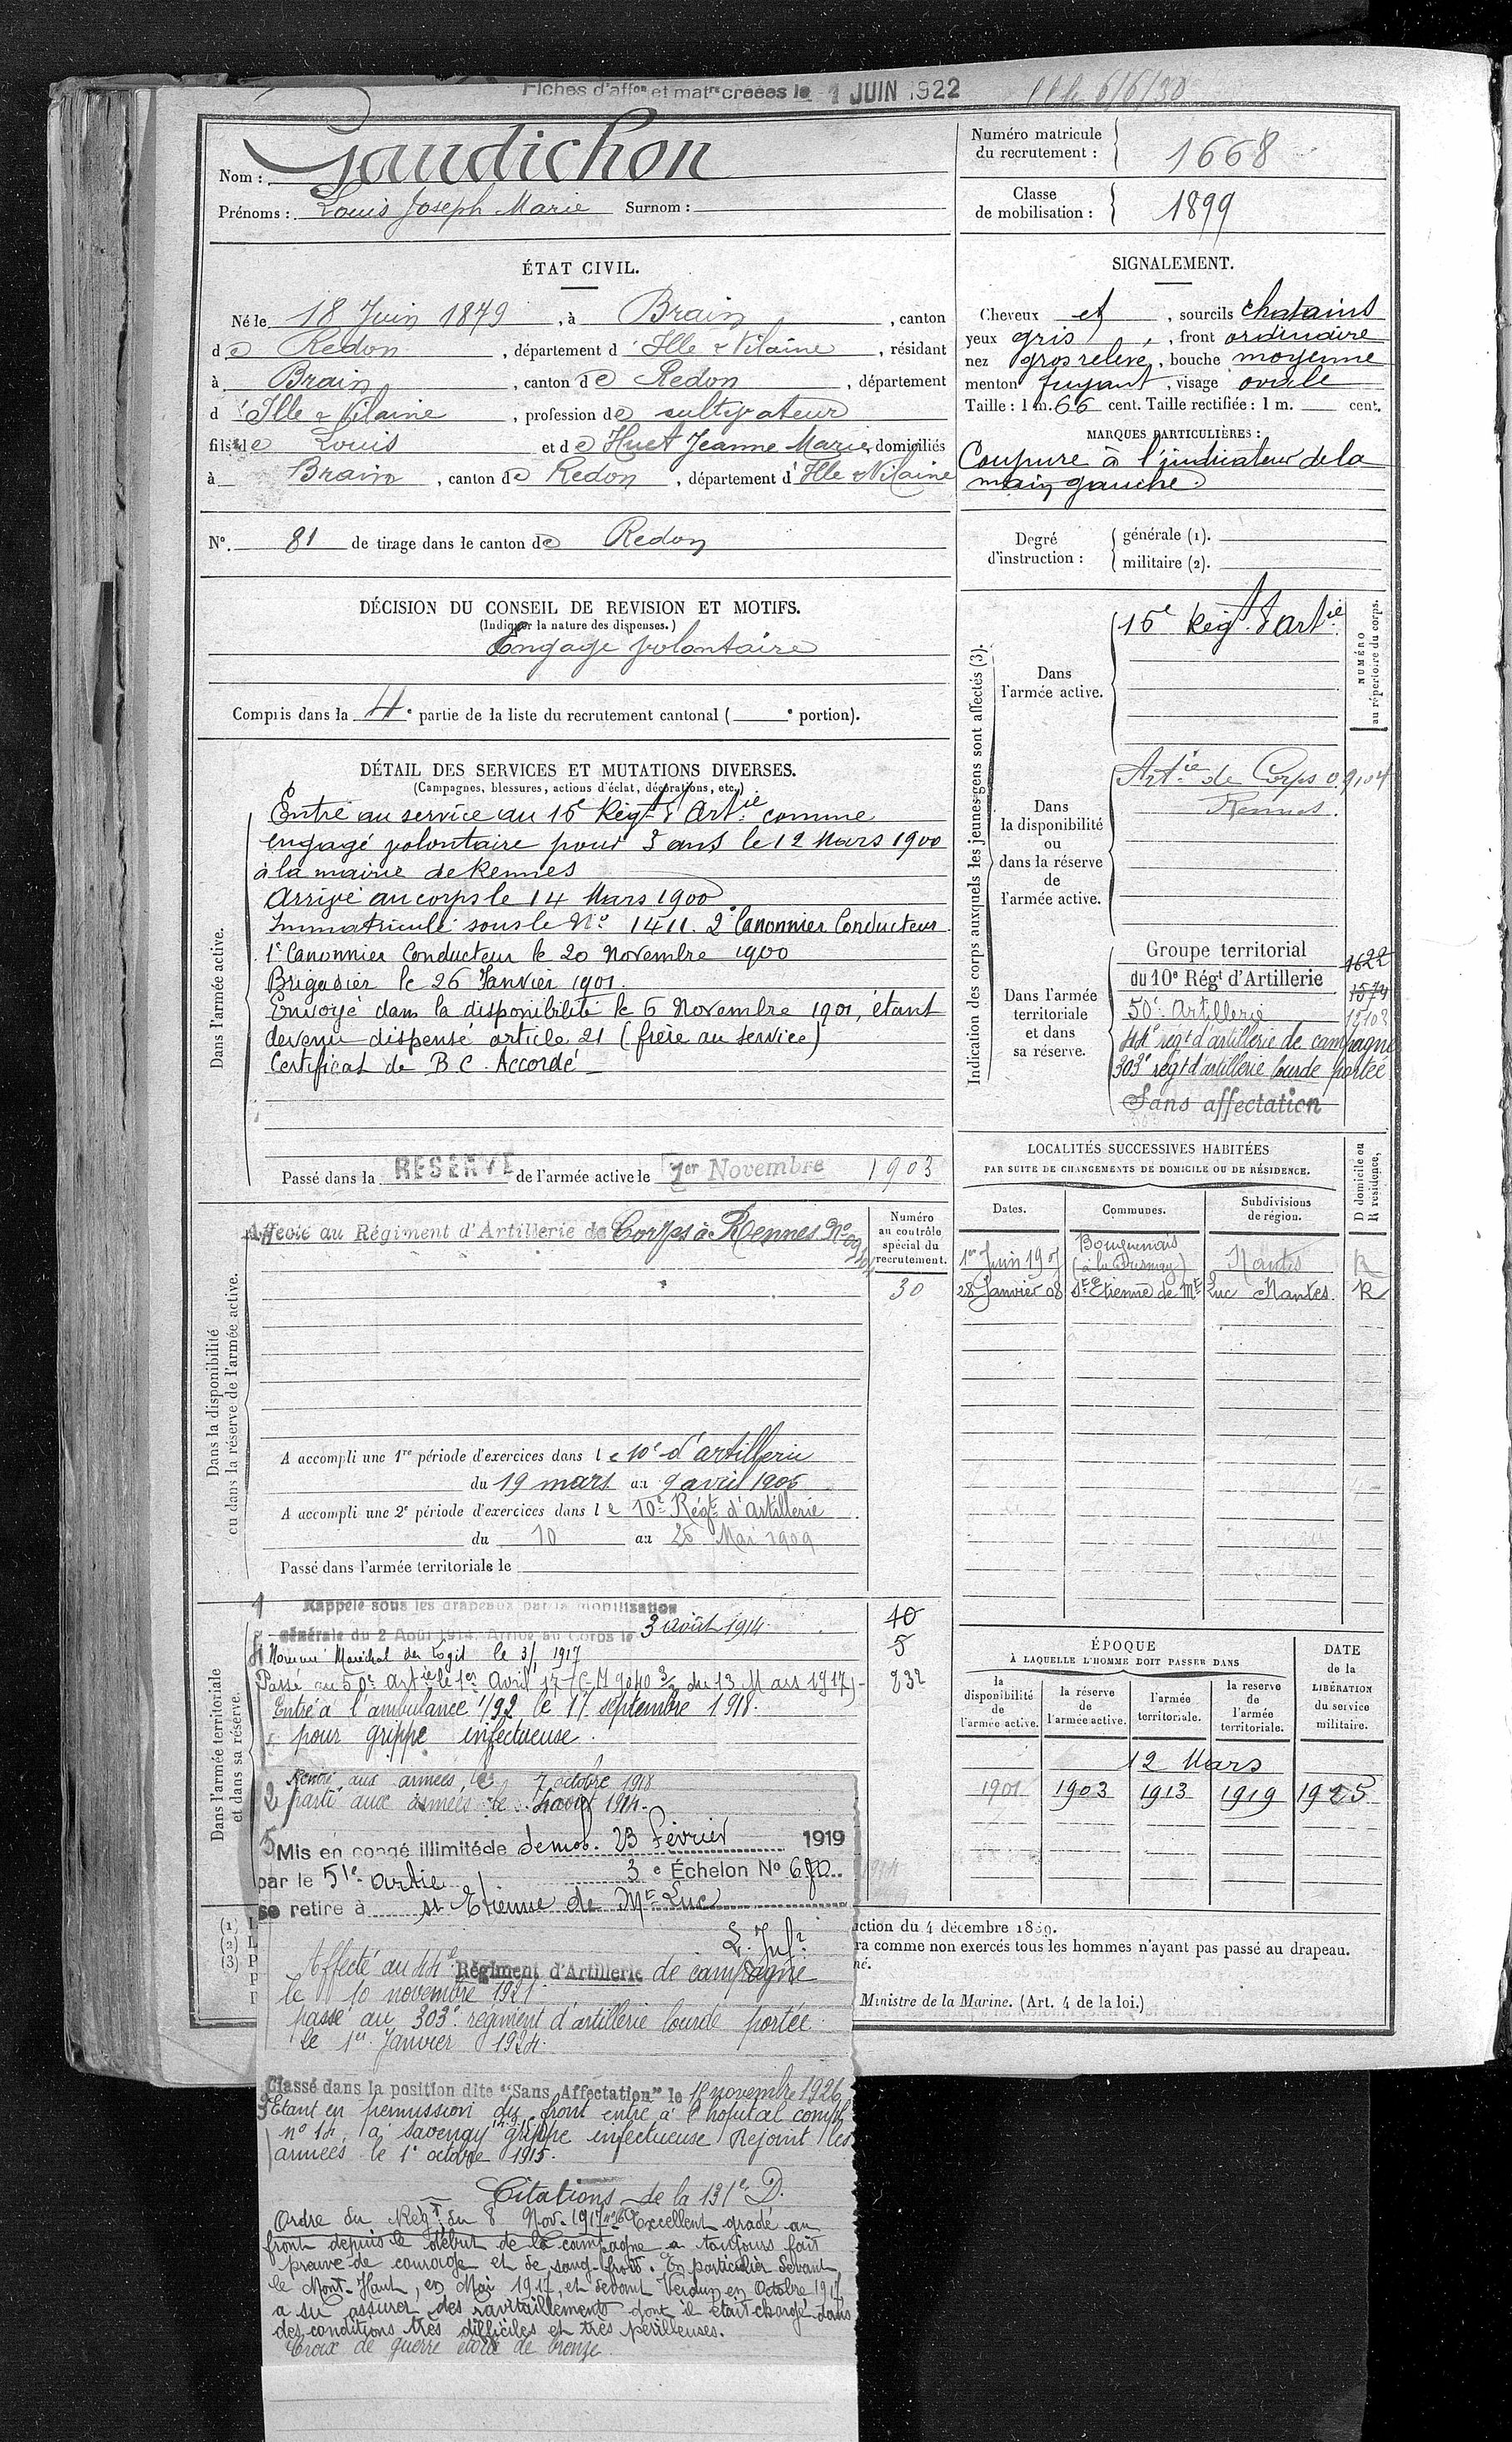 Fiches d'affon et matre créées le 1 JUIN 1922
6/6/30
Nom : Gaudichon
Prénoms : Louis Joseph Marie Surnom :
Numéro matricule
du recrutement : 1668
Classe
de mobilisation : 1899
ÉTAT CIVIL.
Né le 18 Juin 1879, à Brain, canton
de Redon, département d'Ille & Vilaine, résidant
à Brain, canton de Redon, département
d'Ille & Vilaine, profession de cultivateur
fils de Louis et de Huet Jeanne Marie domiciliés
à Brain, canton de Redon, département d'Ille & Vilaine
No. 81 de tirage dans le canton de Redon
SIGNALEMENT.
Cheveux et, sourcils chatains
yeux gris, front ordinaire
nez gros relevé, bouche moyenne
menton fuyant, visage ovale
Taille : 1 m. 66 cent. Taille rectifiée : 1 m. cent.
MARQUES PARTICULIÈRES :
Coupure à l'indicateur de la
main gauche
Degré
d'instruction :
générale (1).
militaire (2).
DÉCISION DU CONSEIL DE REVISION ET MOTIFS.
(Indiquer la nature des dispenses.)
Engagé volontaire
Compris dans la 4e partie de la liste du recrutement cantonal ( e portion).
DÉTAIL DES SERVICES ET MUTATIONS DIVERSES.
(Campagnes, blessures, actions d'éclat, décorations, etc.)
Dans l'armée active.
Entré au service au 15e Régt d'Artie comme
engagé volontaire pour 3 ans le 12 Mars 1900
à la mairie de Rennes
Arrivé au corps le 14 Mars 1900
Immatriculé sous le No 1411. 2e Canonnier Conducteur
1e Canonnier Conducteur le 20 Novembre 1900
Brigadier le 26 Janvier 1901.
Envoyé dans la disponibilité le 6 Novembre 1901, étant
devenu dispensé article 21 (frère au service)
Certificat de B C. Accordé
Passé dans la RESERVE de l'armée active le 1er Novembre 1903
Indication des corps auxquels les jeunes gens sont affectés (3).
NUMÉRO
au répertoire du corps.
Dans
l'armée active.
15e Régt d'Artie
Dans
la disponibilité
ou
dans la réserve
de
l'armée active.
Artie de Corps 09104
Rennes.
Dans l'armée
territoriale
et dans
sa réserve.
Groupe territorial 1622
du 10e Régt d'Artillerie 1574
50e Artillerie 15103
44e régt d'artillerie de campagne
303e régt d'artillerie lourde portée
Sans affectation
Dans la disponibilité
ou dans la réserve de l'armée active.
Affecté au Régiment d'Artillerie de Corps à Rennes No 09104
Numéro
au contrôle
spécial du
recrutement.
30
A accompli une 1re période d'exercices dans le 10e d'artillerie
du 19 mars au 9 avril 1906
A accompli une 2e période d'exercices dans le 10e Régt d'Artillerie
du 10 au 26 Mai 1909
Passé dans l'armée territoriale le
LOCALITÉS SUCCESSIVES HABITÉES
PAR SUITE DE CHANGEMENTS DE DOMICILE OU DE RÉSIDENCE.
D domicile ou
R résidence,
Dates. Communes. Subdivisions
de région.
1er Juin 190 Bouguenais Nantes R
28 Janvier 08 St Etienne de Mt Luc Nantes. R
Dans l'armée territoriale
et dans sa réserve.
1 Rappelé sous les drapeaux par la mobilisation
générale du 2 Août 1914. Arrivé au Corps le 3 août 1914.
4 Nommé Maréchal des Logis le 1917
Passé au 50e Artie le 1er Avril 17 (C.M 9040 3/ du 13 Mars 1917)
Entré à l'ambulance 1/92 le 17 septembre 1918.
pour grippe infectueuse.
Rentré aux armées le 7 octobre 1918
2 parti aux armées le août 1914.
10
5
232
5 Mis en congé illimité de demob. 23 Février 1919
par le 51e artie 3e Échelon No 680
se retire à St Etienne de Mt Luc
Affecté au 44e Régiment d'Artillerie de campagne
le 10 novembre 1921
passé au 303e régiment d'artillerie lourde portée
le 1er Janvier 1924.
Classé dans la position dite "Sans Affectation" le 15 novembre 1926
3 Etant en permission du front entré à l'hopital compl
no 14 à Savenay grippe infectueuse Rejoint les
armées le 1e octobre 1915.
Citations de la 131e D.
Ordre du Régt du 8 Nov. 1917 Excellent gradé au
front depuis le début de la campagne a toujours fait
preuve de courage et de sang-froid. En particulier devant
le Mont-Haut, en Mai 1917, et devant Verdun en Octobre 1917
a su assurer des ravitaillements dont il était chargé dans
des conditions très difficiles et très périlleuses.
Croix de guerre étoile de bronze
ÉPOQUE
À LAQUELLE L'HOMME DOIT PASSER DANS
DATE
de la
LIBÉRATION
du service
militaire.
la
disponibilité
de
l'armée active.
la réserve
de
l'armée active.
l'armée
territoriale.
la reserve
de
l'armée
territoriale.
12 Mars
1901 1903 1913 1919 1925
(1)
(2) L
(3) P
ction du 4 décembre 1889.
ra comme non exercés tous les hommes n'ayant pas passé au drapeau.
né.
Ministre de la Marine. (Art. 4 de la loi.)